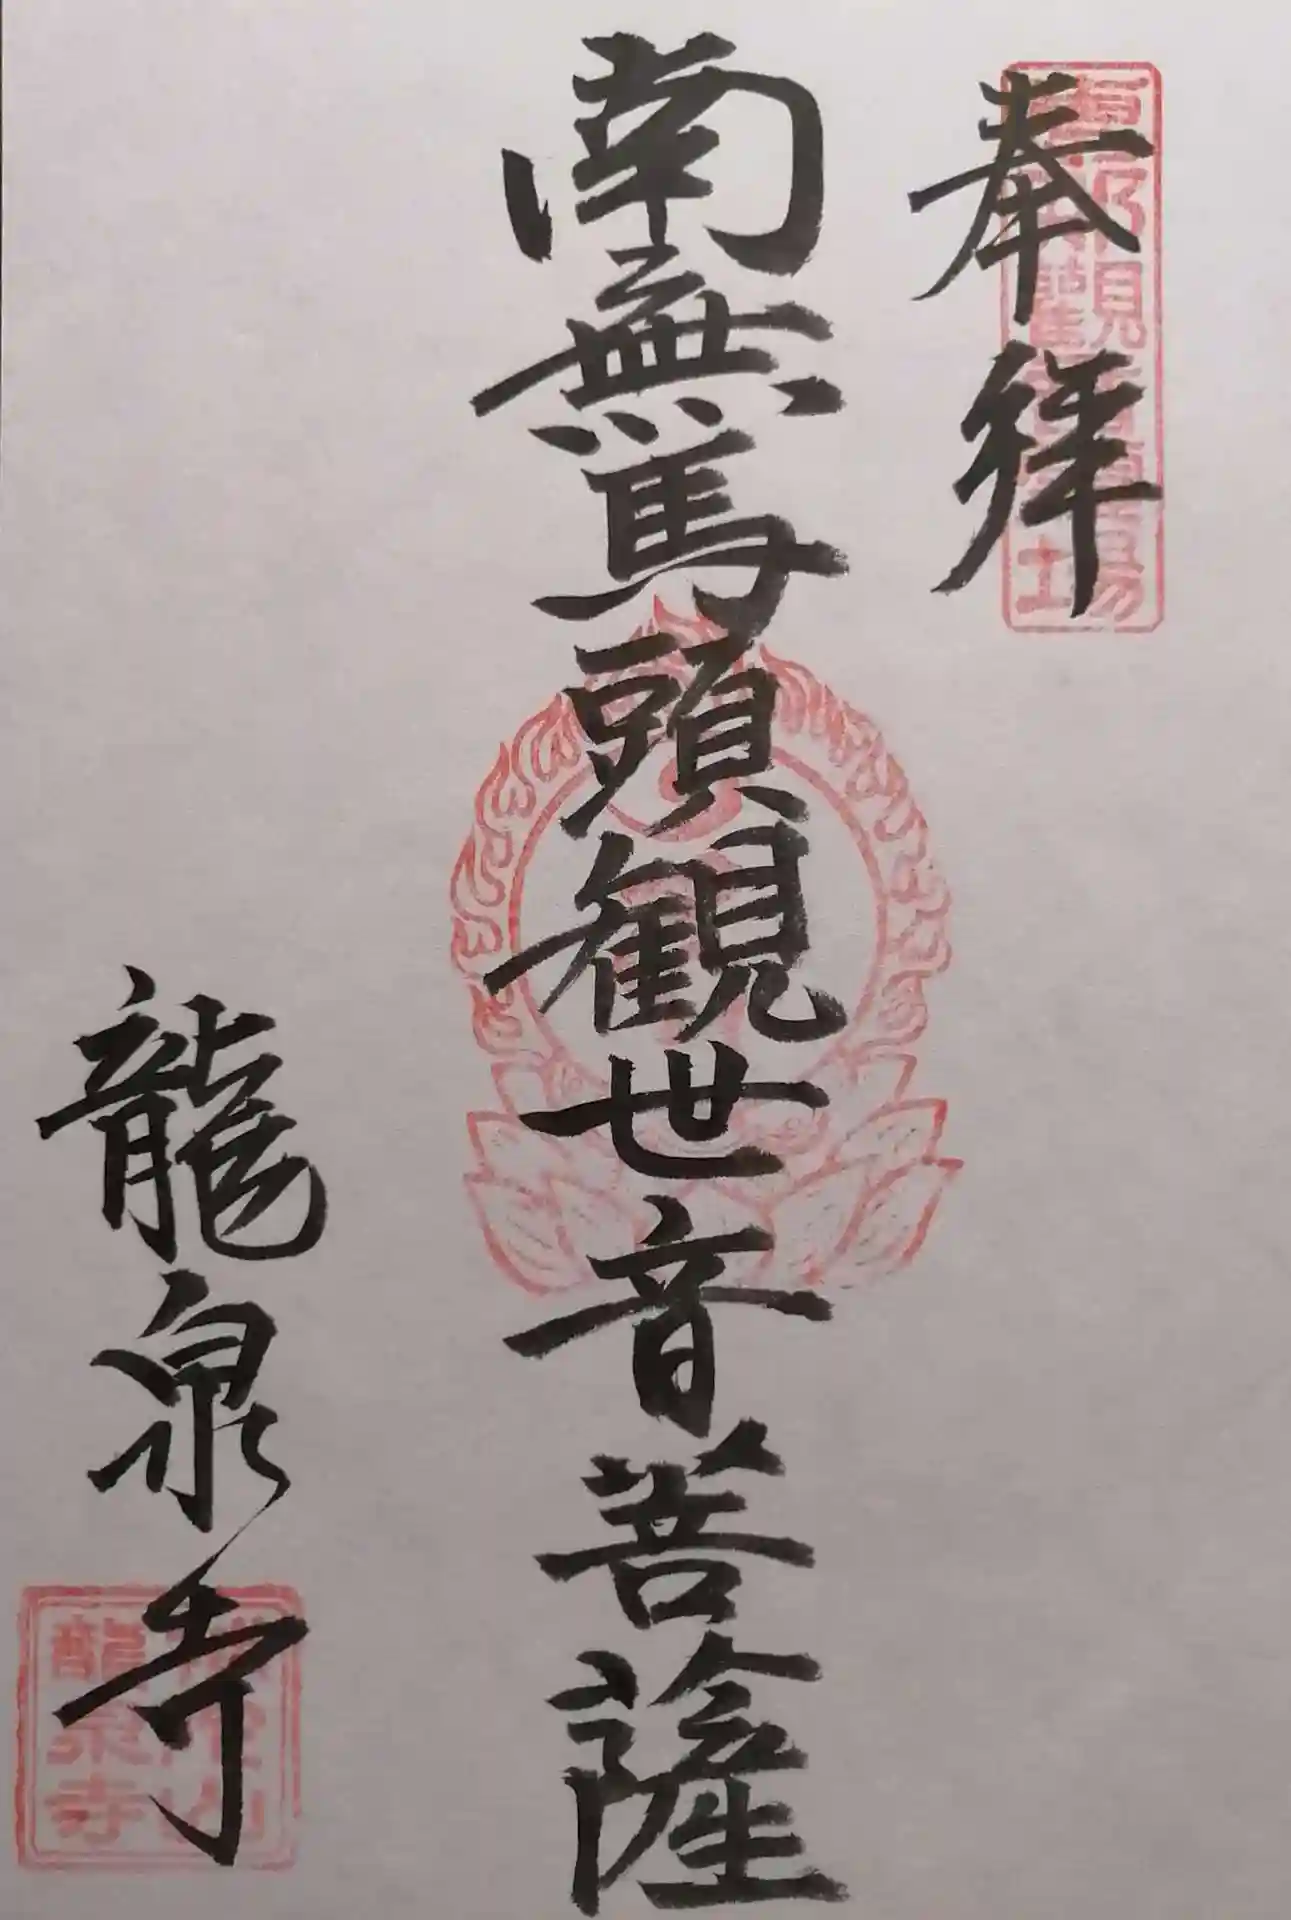 奉拝
南無馬頭観世音菩薩
龍泉寺
龍泉寺